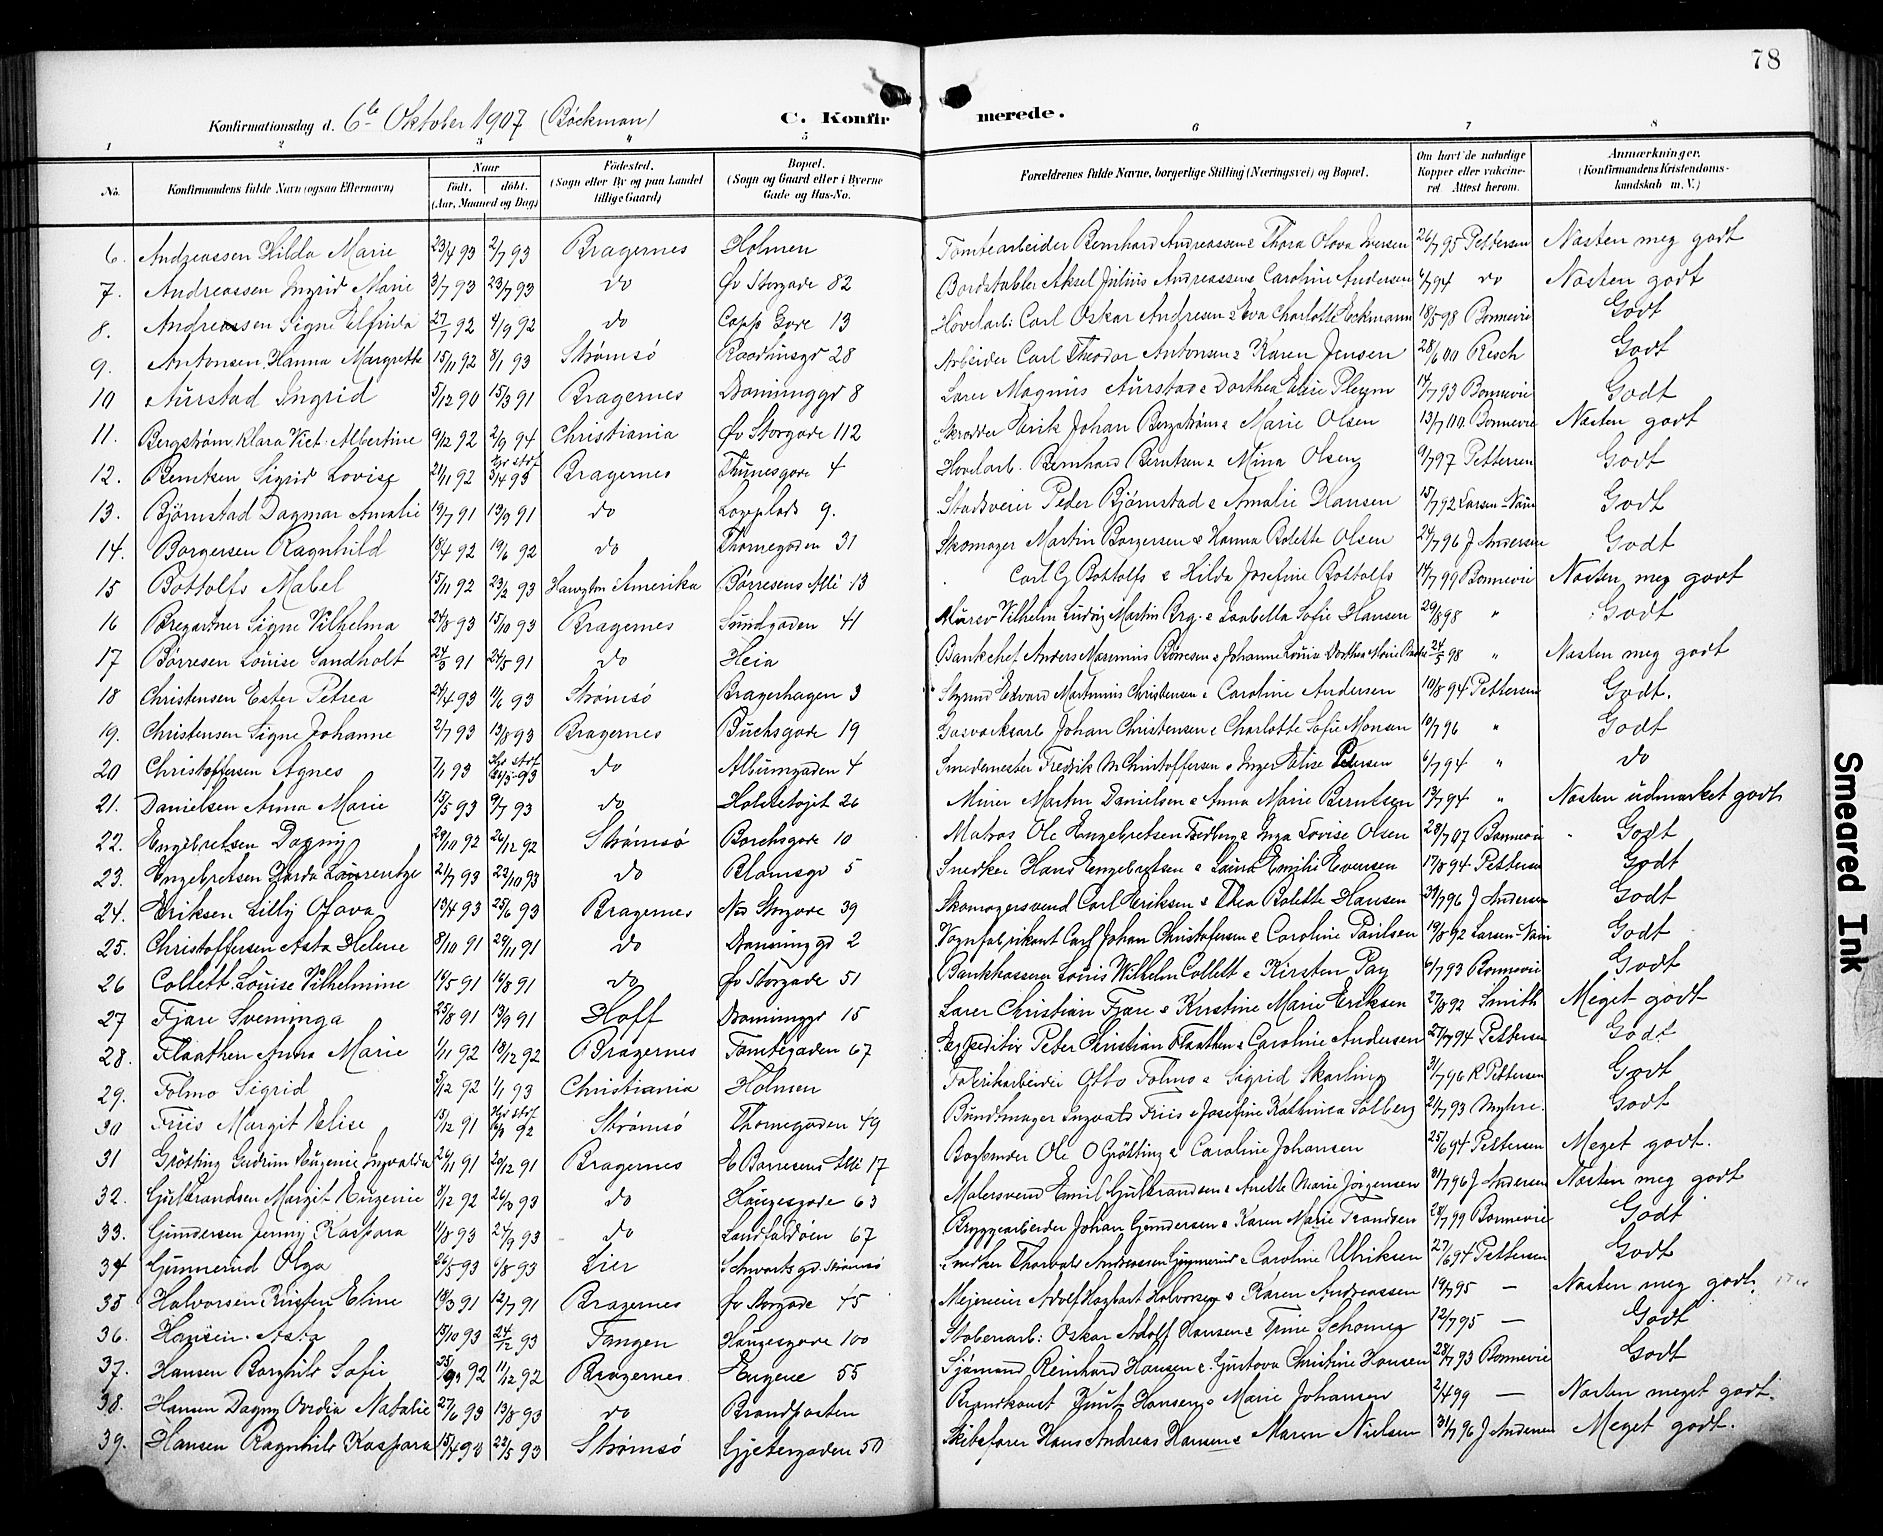 78
Konfirmationsdag d. 6te Oktober 1907 (Böckman)
C. Konfirmerede.
1 2 3 4 5 6 7 8
No.
Konfirmandens fulde Navn (ogsaa Efternavn)
Naar
født. døbt.
(Aar, Maaned og Dag)
Fødested.
(Sogn eller By og paa Landet tillige Gaard)
Bopæl.
(Sogn og Gaard eller i Byerne Gade og Hus-No.
Forældrenes fulde Navne, borgerlige Stilling (Næringsvei) og Bopæl.
Om havt de naturlige Kopper eller vaccineret. Attest herom.
Anmærkninger.
(Konfirmandens Kristendomskundskab m. V.)
6. Andreassen Hilda Marie 23/4 93 2/7 93 Bragernes Holmen Tomtearbeider Bernhard Andreassen & Thora Olova Iversen 26/7 95 Pettersen Næsten meg godt
7. Andreassen Ingrid Marie 3/7 93 23/7 93 do Øv Storgade 82 Bordstabler Aksel Julius Andreassen & Caroline Andersen 6/7 94 do Næsten godt
8. Andreassen Signe Elfrida 27/7 92 4/9 92 do Capp. Gade 13 Høvelarb: Carl Oskar Andresen & Eva Charlotte Eckmann 18/5 98 Bonnevie Godt
9. Antonsen Hanna Margrethe 15/11 92 8/1 93 Strømsö Raadhusgd 28 Arbeider Carl Theodor Antonsen & Karen Jensen 28/6 00 Resch Godt
10 Aurstad Ingrid 5/12 90 15/3 91 Bragernes Dronninggd 8 Lærer Magnus Aurstad & Dorthea Elsie Pleym 14/7 93 Bonnevie Godt
11. Bergström Klara Vict. Albertine 9/12 92 2/9 94 Christiania Øv Storgade 112 Skrædder Erik Johan Bergström & Marie Olsen 13/7 00. Bonnevie Næsten godt
12. Berntsen Sigrid Lovise 21/11 92 3/4 93 Bragernes Thunesgade 4 Høvelarb. Bernhard Berntsen & Mina Olsen 9/7 97 Pettersen Godt
13. Bjørnstad Dagmar Amalie 19/7 91 13/9 91 do Løgeplads 9. Stadsveier Peder Bjørnstad & Amalie Hansen 15/7 92 Larsen-Næss Godt
14. Borgersen Ragnhild 18/4 92 19/6 92 do Thornegaden 31 Skomager Martin Borgersen & Hanna Bolette Olsen 24/7 96 J Andersen Godt
15 Bottolfs Mabel 15/11 92 23/2 93 Amerika Børresens Allé 13 Carl G Bottolfs & Hilda Josefine Bottolfs 14/7 99 Bonnevie Næsten meg godt
16 Bregartner Signe Vilhelma 24/8 93 15/10 93 Bragernes Sundgaden 41 Murer Vilhelm Ludvig Martin Brg. & Isabella Sofie Hansen 29/8 98 " Godt
17 Børresen Louise Sandholt 24/3 91 24/5 91 do Heia Bankchef Anders Maximus Børresen & Johanne Louise Dorthea Marie 24/5 98 " Næsten meg godt
18 Christensen Ester Petrea 24/4 93 11/6 93 Strømsö Bragerhagen 3 Styrmd Edvard Martinius Christensen & Caroline Andersen 10/8 94 Pettersen Godt.
19. Christensen Signe Johanne 2/7 93 13/8 93 Bragernes Buchsgade 19 Gasværksarb Johan Christensen & Charlotte Sofie Monsen 10/7 96 " Godt
20 Christoffersen Agnes 7/1 93 93 do Albumgaden 4 Smedemester Fredrik M Christoffersen & Inger Elise Petersen 6/7 94 " do
21. Danielsen Anna Marie 15/5 93 9/7 93 do Holstetøjet 26 Murer Martin Danielsen & Anna Marie Berntsen 13/7 94 " Næsten udmærket godt
22. Engebretsen Dagny 29/10 92 26/12 92 Strømsö Borchsgade 10 Matros Ole Engebretsen Fredberg & Inga Lovise Olsen 28/7 07 Bonnevie Godt
23. Engebretsen Gerda Laurentze 21/7 93 22/10 93 do Blomsgd 5 Snedker Hans Engebretsen & Laura Emilie Evensen 17/8 94 Pettersen Godt
24. Eriksen Lilly Olava 13/4 93 25/6 93 Bragernes Ned Storgade 39 Skomagersvend Carl Eriksen & Thea Bolette Hansen 30/7 96 J Andersen Godt
25. Christoffersen Asta Helene 8/10 91 29/11 91 do Dronninggd 2 Vognfabrikant Carl Johan Christofersen & Caroline Paulsen 19/8 92 Larsen-Næss Godt
26 Collett Louise Vilhelmine 14/5 91 16/8 91 do Øv Storgade 51 Bankkasserer Louis Wilhelm Collett & Kirsten Pay 6/7 93 Bonnevie Godt
27 Fjære Sveininga 25/8 91 13/9 91 Hoff Dronninggd 15 Lærer Christian Fjære & Kirstine Marie Eriksen 27/8 92 Smith Meget godt
28. Flaathen Anna Marie 1/11 92 18/12 92 Bragernes Tomtegaden 67 Expeditör Peter Christian Flaathen & Caroline Andersen 27/7 94 Pettersen Godt
29. Folmo Sigrid 5/12 92 1/1 93 Christiania Holmen Fabrikarbeider Otto Folmo & Sigrid Skarling 31/7 96 K Pettersen Godt
30 Friis Margit Elise 15/12 91 92 Strømsö Thornegaden 49 Bundtmager Ingvald Friis & Josefine Kathinca Solberg 21/7 93 Myhre. Godt
31 Grötting Gudrun Eugenie Ingvalda 29/11 91 20/12 91 Bragernes E Børresens Allé 17 Bogbinder Ole O Grötting & Caroline Johansen 25/6 94 Pettersen Meget godt.
32. Gulbrandsen Margit Eugenie 8/12 92 26/3 93 do Haugesgade 63 Malersvend Emil Gulbrandsen & Anette Marie Jörgensen 31/7 96 J Andersen Næsten meg godt
33. Gundersen Jenny Kaspara 11/8 93 24/9 93 do Landfaldöen 67 Bryggearbeider Johan Gundersen & Karen Marie Frandsen 28/7 99 Bonnevie Godt
34 Gunnerud Olga 26/5 93 6/8 93 Lier Schwartsgd Strømsö Snedker Thorvald Andreassen Gunnerud & Caroline Ulriksen 27/6 94 Pettersen Godt
35 Halvorsen Kristen Eline 19/3 91 12/7 91 Bragernes Øv Storgade 45 Mejerieier Adolf Hagbart Halvorsen & Karen Andreassen 19/7 95 — Næsten meg godt.
36. Hansen Asta 15/10 93 24/12 93 Tangen Haugesgade 100 Støberiarb: Oskar Adolf Hansen & Trine Schomes 12/7 95 — Godt
37. Hansen Borghild Sofie 92 11/12 92 Bragernes Engene 55 Sjømand Reinhard Hansen & Gustava Christine Hansen 28/7 93 Bonnevie Godt
38. Hansen Dagny Ovidia Natalie 27/6 93 13/8 93 do Brandposten Brandkonst Knut Hansen & Marie Johansen 2/4 99 — Næsten meget godt.
39. Hansen Ragnhild Kaspara 15/4 93 22/5 93 Strømsö Gjetergaden 50 Skibsfører Hans Andreas Hansen & Maren Nielsen 31/7 96 J Andersen Meget godt.
Smeared Ink